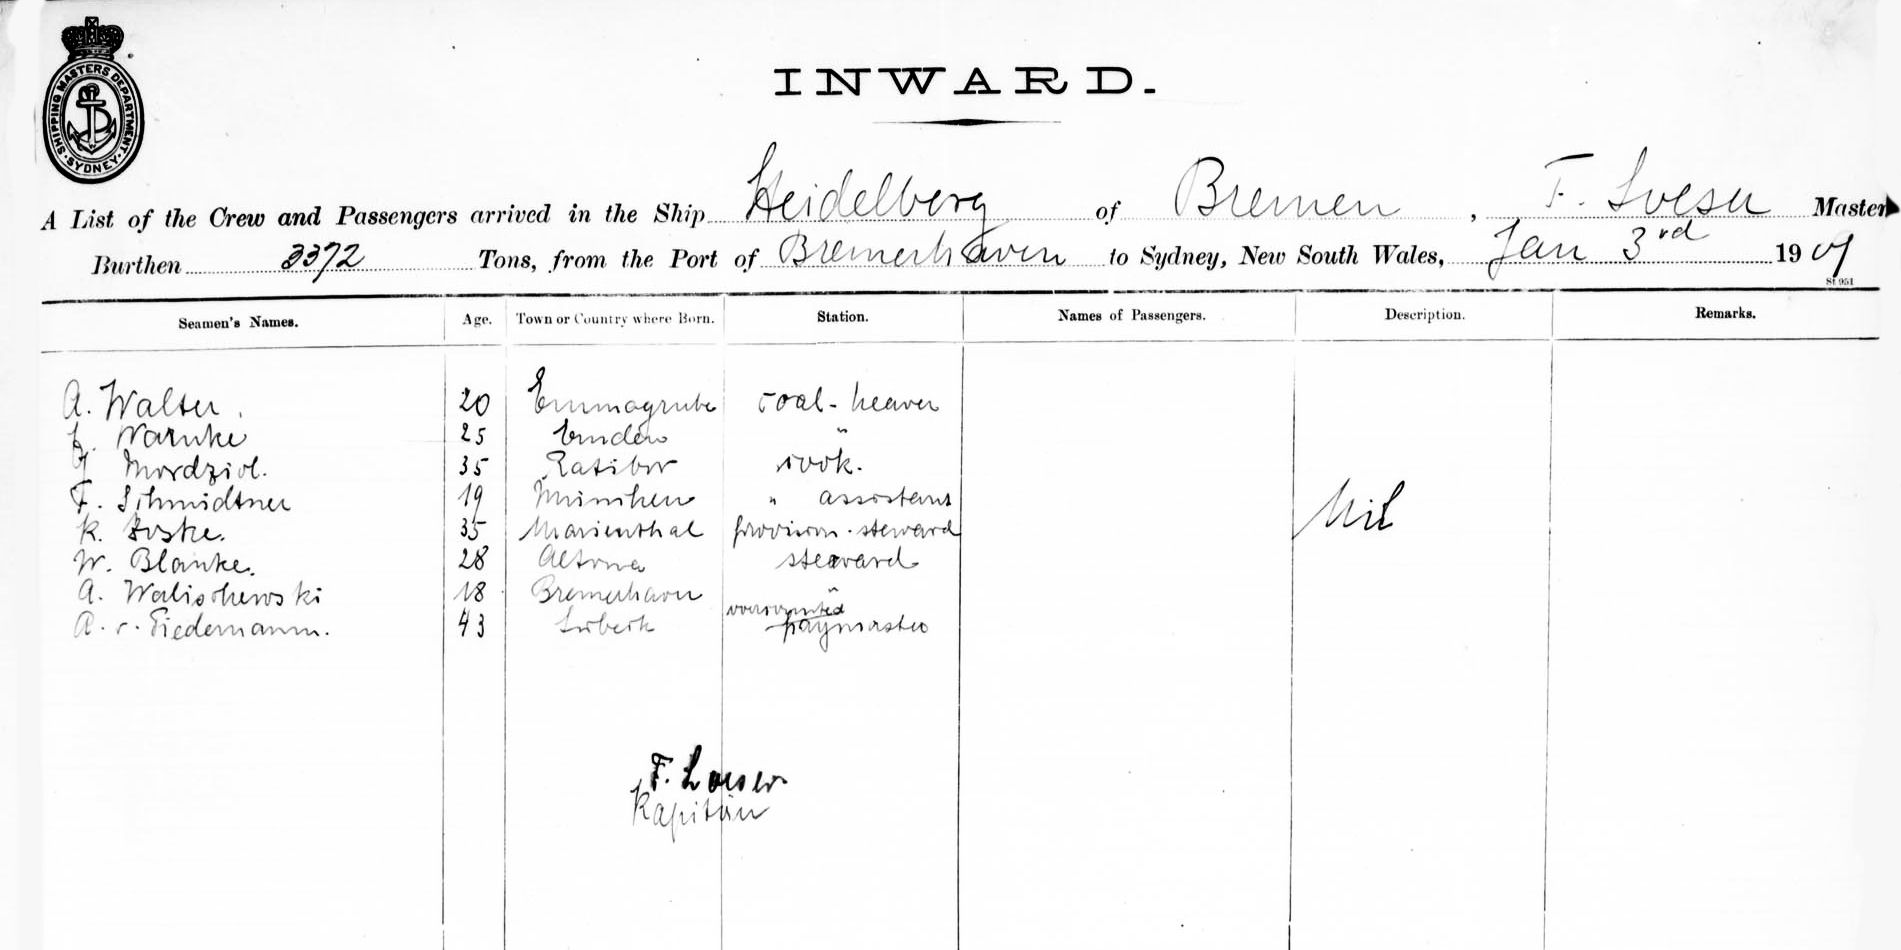 SHIPPING MASTERS DEPARTMENT · SYDNEY ·
INWARD.
A List of the Crew and Passengers arrived in the Ship Heidelberg of Bremen, F. Loeser Master
Burthen 3372 Tons, from the Port of Bremerhaven to Sydney, New South Wales, Jan 3rd 19
St 951
Seamen's Names. Age. Town or Country where Born. Station. Names of Passengers. Description. Remarks.
A. Walter. 20 Emmagrube coal-heaver
Warnke 25 Emden "
Mordziol. 35 Ratibor cook.
F. Schmidtner 19 München " assistant
K. 35 Marienthal provision-steward
Nil
W. Blanke. 28 Altona steward
A. Walischewski 18 Bremerhaven "
A. v. Tiedemann. 43 Lübeck paymaster
F. Loeser
Kapitän